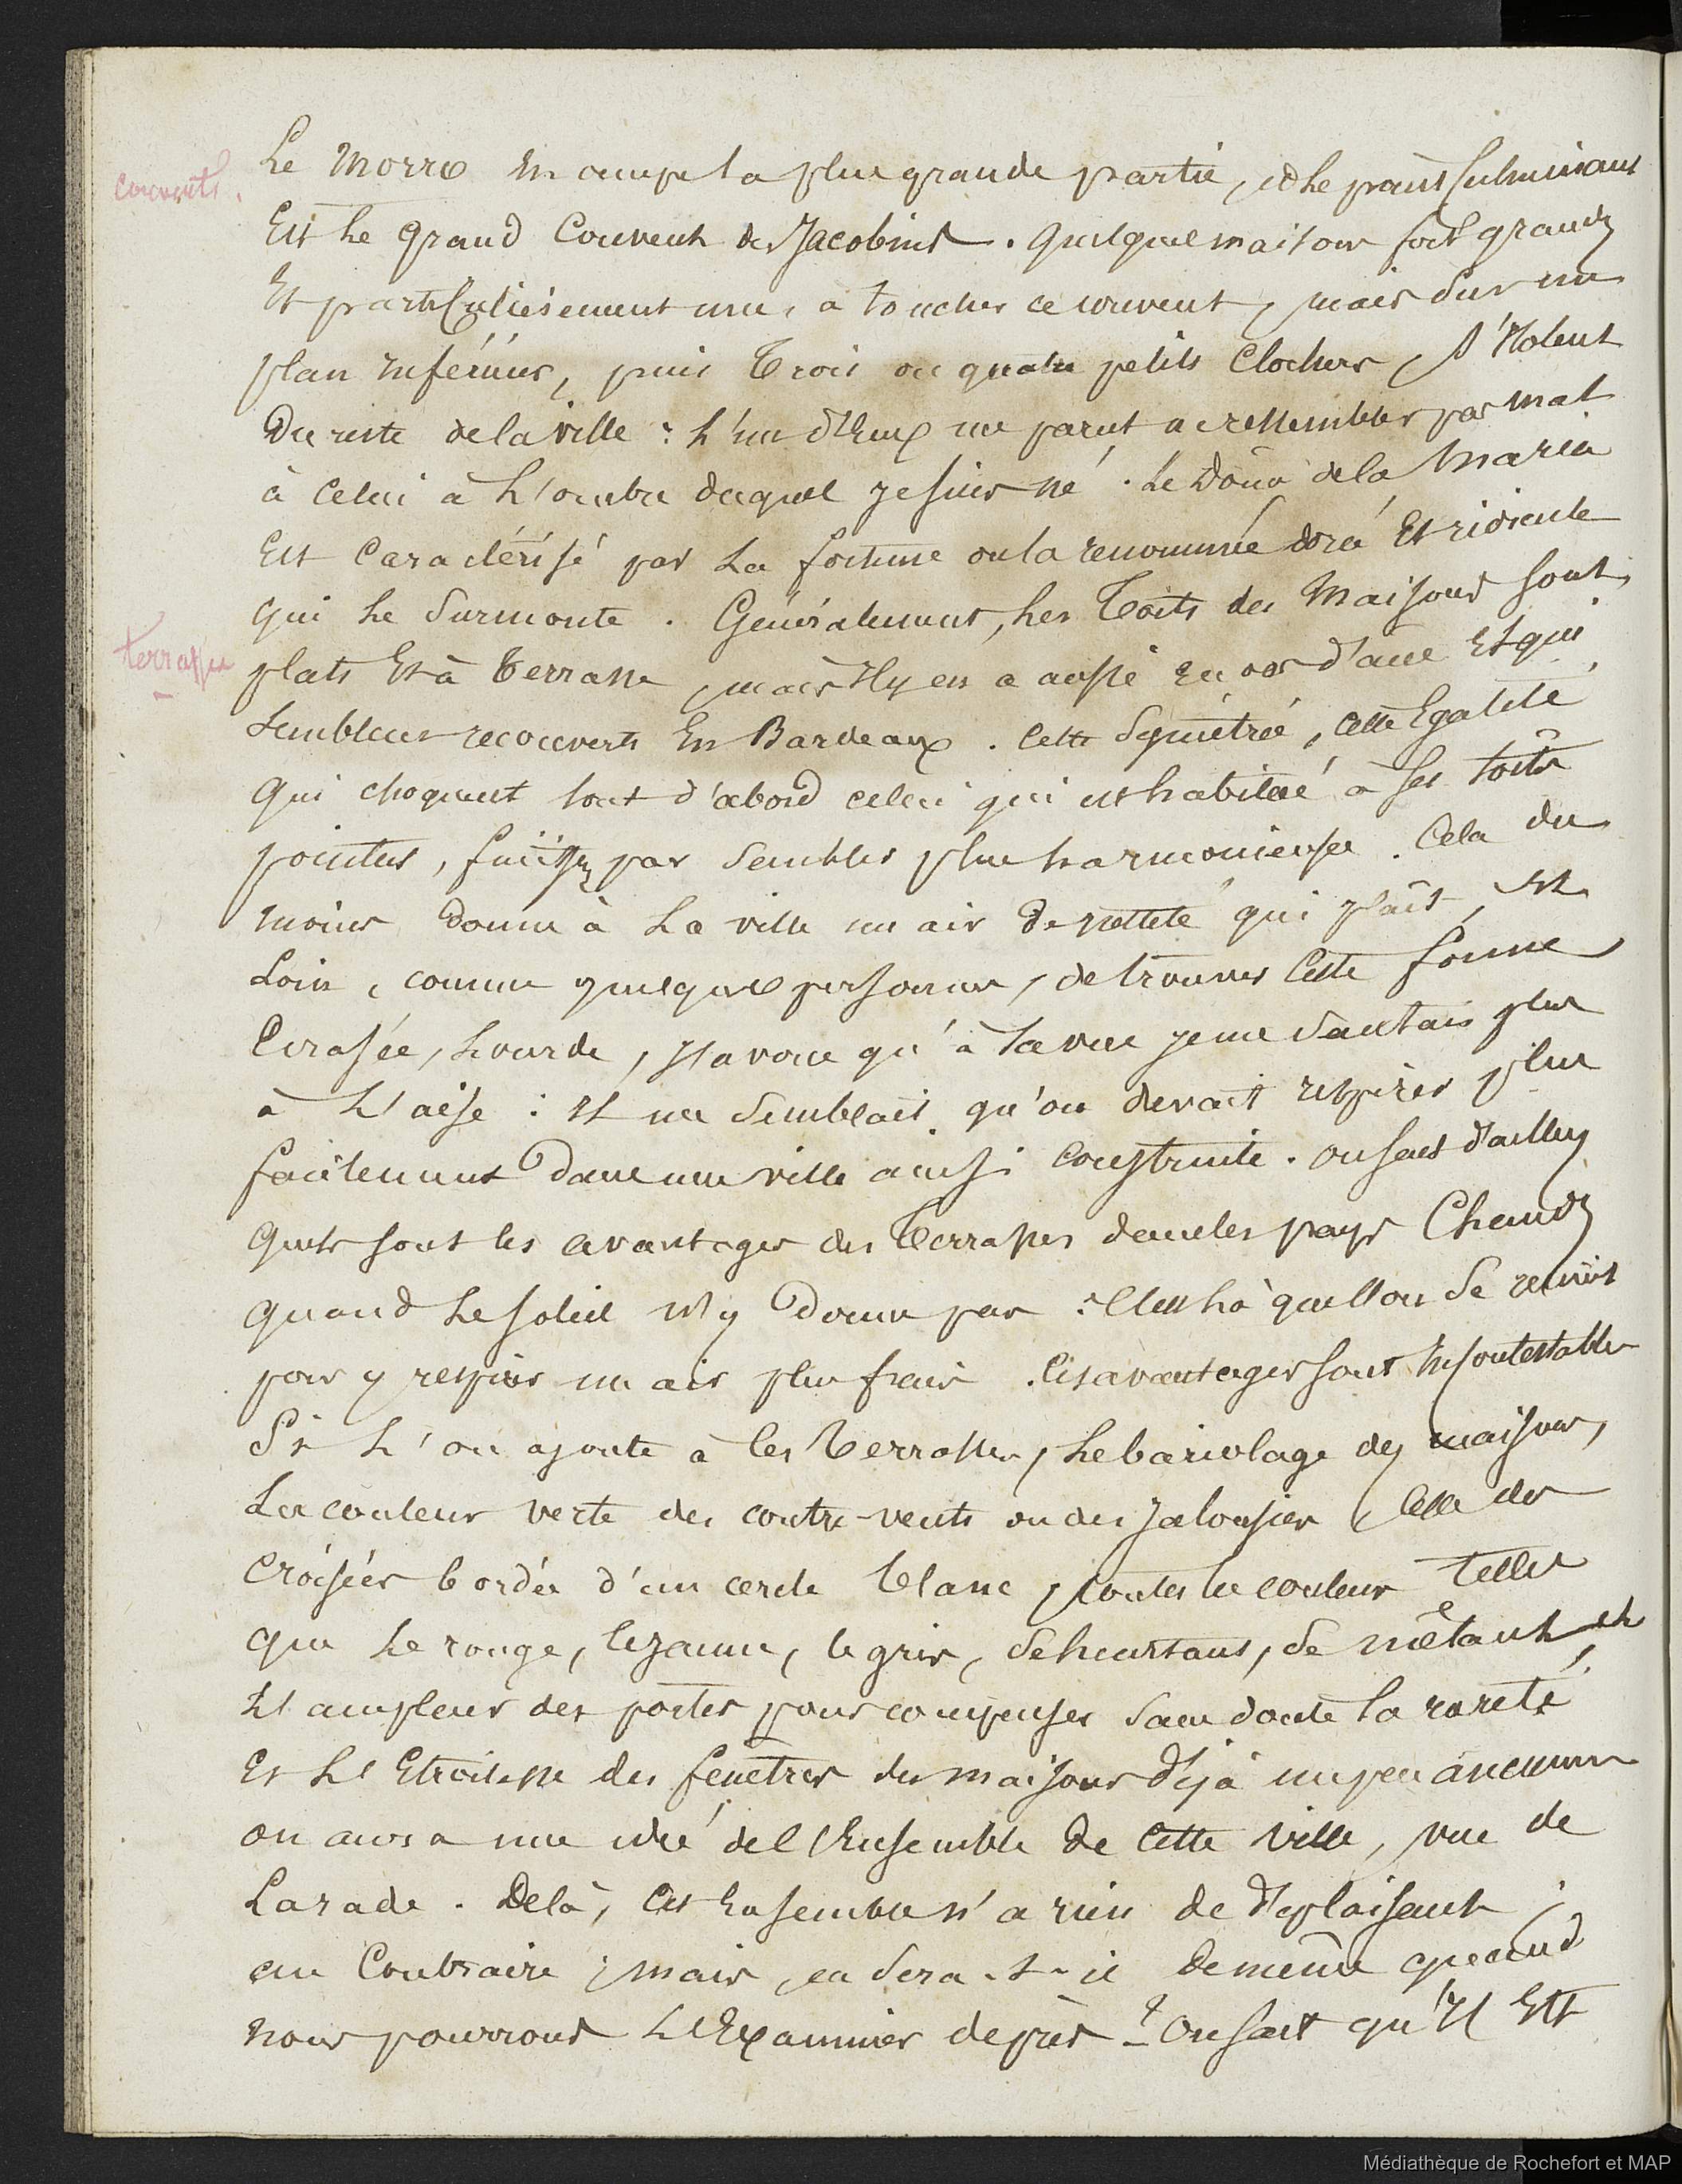 couvents.
Le Morro en occupe la plus grande partie, et le point culminant
Est le grand Couvent des Jacobins. Quelques maisons fort grandes
Et particulièrement une, a toucher ce couvent, mais sur un
plan inférieur, puis Trois ou quatre petits Clochers, s'Isolent
Du reste de la ville : l'un d'Eux me parut ressembler pas mal
à Celui à l'ombre duquel je suis né. Le Dôme de la Maria
Est Caractérisé par La fortune ou la renommée dorée Et ridicule
qui le Surmonte. Généralement, les Toits des Maisons sont
terrasses
plats Et à Terrasse, mais Il y en a aussi en dos d'âne Et qui
Semblent recouverts En Bardeaux. Cette Symétrie, cette Egalité
Qui choquent tout d'abord celui qui est habitué à ses toits
pointus, finissent par sembler plus harmonieuses. Cela du
moins donne à La ville un air de netteté qui plaît, Et
Loin, comme quelques personnes, de trouver Cette forme
Ecrasée, Lourde, J'avoue qu'à La vue je me sentais plus
à L'aise : Il me Semblait qu'on devait respirer plus
facilement Dans une ville ainsi construite. On sait d'ailleurs
Quels sont les avantages des Terrasses dans les pays Chauds
quand Le soleil n'y Donne pas : C'est là que l'on se réunit
pour y respirer un air plus frais. Ces avantages sont Incontestables
Si L'on ajoute à ces Terrasses, Le bariolage des maisons,
La couleur verte des contre-vents ou des Jalousies, Celle des
Croisées bordées d'un cercle blanc, toutes les couleurs telles
que Le rouge, le jaune, le gris, se heurtant, se mêlant, et
L'ampleur des portes pour compenser sans doute la rareté
Et L'Etroitesse des fenêtres des maisons déjà un peu anciennes
on aura une idée de l'Ensemble de Cette ville, vue de
La rade. De là, Cet Ensemble n'a rien de déplaisant ;
au Contraire ; mais, en sera-t-il de même quand
nous pourrons L'Examiner de près ? On sait qu'Il Est
Médiathèque de Rochefort et MAP